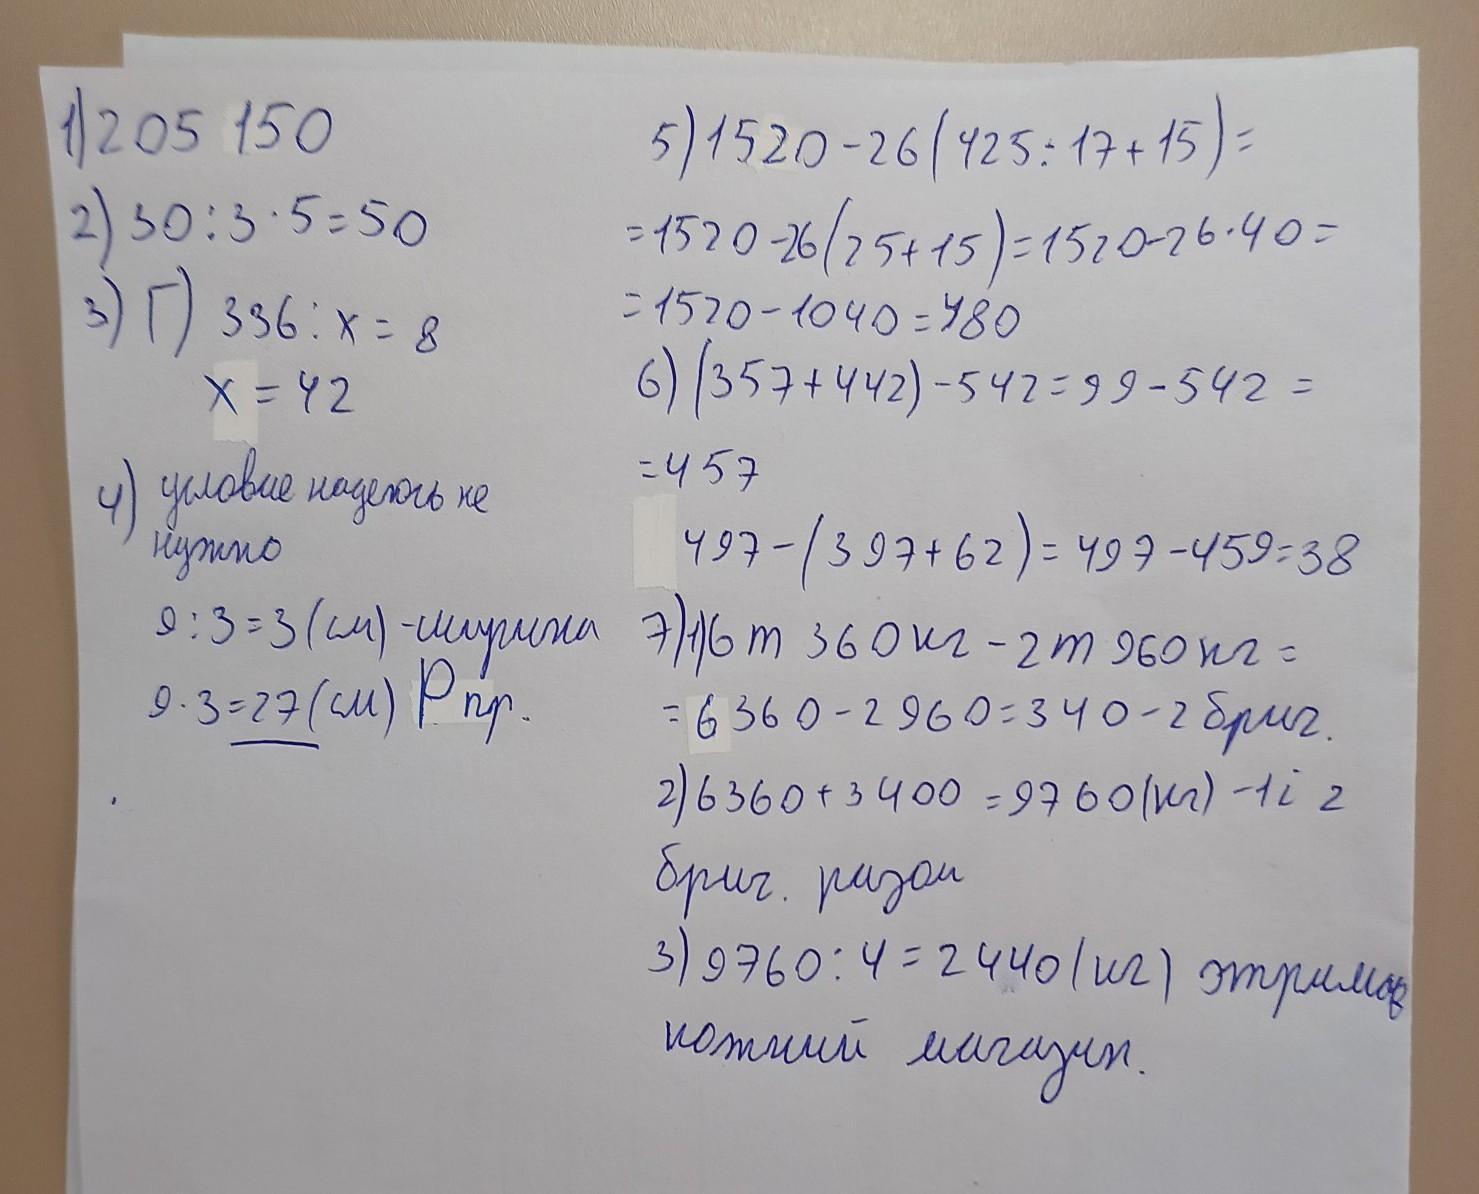 1) 205 150
2) 30 : 3 · 5 = 50
3) Г) 336 : x = 8
x = 42
4) условие надеюсь не
нужно
9 : 3 = 3 (см) - ширина
9 · 3 = 27 (см) P пр.
5) 1520 - 26 (425 : 17 + 15) =
= 1520 - 26 (25 + 15) = 1520 - 26 · 40 =
= 1520 - 1040 = 480
6) (357 + 442) - 542 = 99 - 542 =
= 457
497 - (397 + 62) = 497 - 459 = 38
7) 1) 6 т 360 кг - 2 т 960 кг =
= 6360 - 2960 = 340 - 2 бриг.
2) 6360 + 3400 = 9760 (кг) - 1 і 2
бриг. разом
3) 9760 : 4 = 2440 (кг) отримав
кожний магазин.